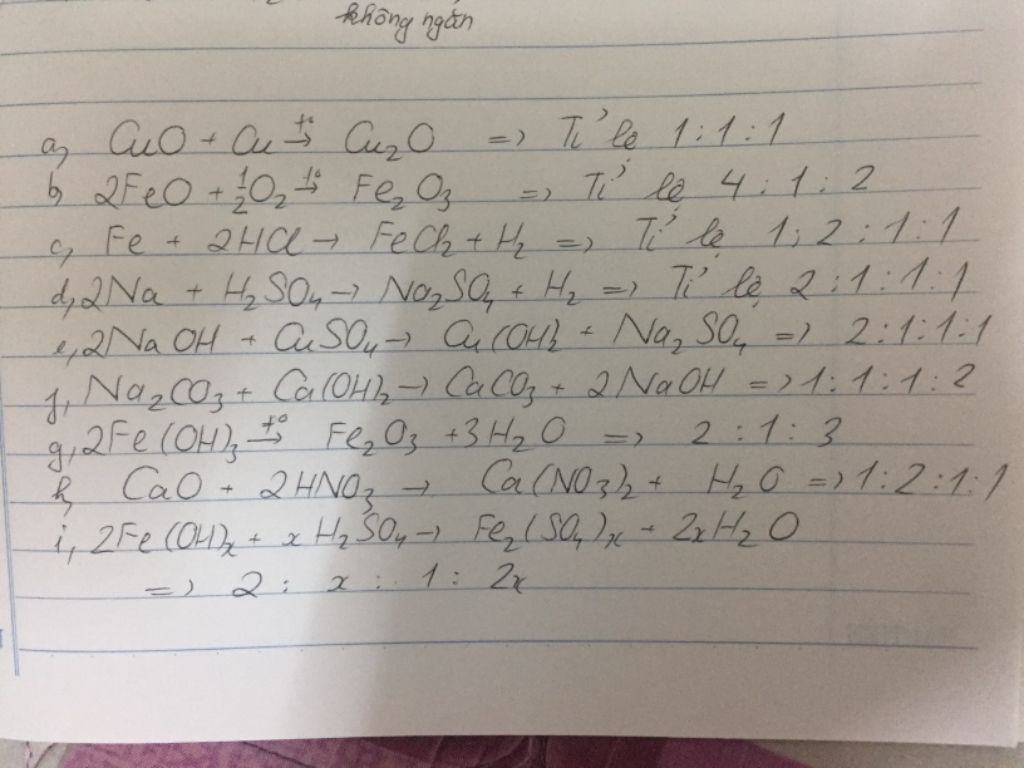 không ngắn
a, CuO + Cu t°→ Cu₂O => Tỉ lệ 1:1:1
b, 2FeO + ½O₂ t°→ Fe₂O₃ => Tỉ lệ 4:1:2
c, Fe + 2HCl → FeCl₂ + H₂ => Tỉ lệ 1:2:1:1
d, 2Na + H₂SO₄ → Na₂SO₄ + H₂ => Tỉ lệ 2:1:1:1
e, 2NaOH + CuSO₄ → Cu(OH)₂ + Na₂SO₄ => 2:1:1:1
f, Na₂CO₃ + Ca(OH)₂ → CaCO₃ + 2NaOH => 1:1:1:2
g, 2Fe(OH)₃ t°→ Fe₂O₃ + 3H₂O => 2:1:3
h, CaO + 2HNO₃ → Ca(NO₃)₂ + H₂O => 1:2:1:1
i, 2Fe(OH)ₓ + xH₂SO₄ → Fe₂(SO₄)ₓ + 2xH₂O
=> 2 : x : 1 : 2x